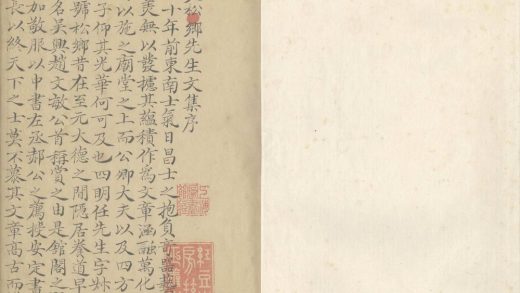 松鄉先生文集序
十年前東南士氣日昌士之抱負奇
羙無以發攄其蘊積作為文章涵融萬化
以施之廟堂之上而公卿大夫以及四方
子仰其光華何可及也四明任先生字
號松鄉昔在至元大德之間隱居養道早
名吳興趙文敏公首稱賞之由是館閣之
加敬服以中書左丞郝公之薦授安定書
長以終天下之士莫不慕其文章高古而